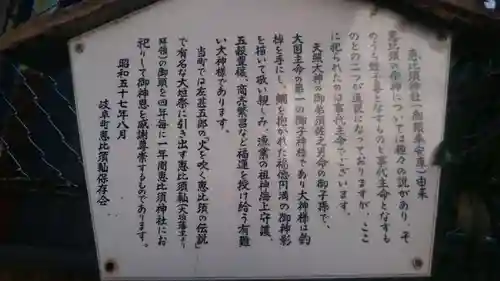 恵比須神社(御頭奉安斎)由来
恵比須の祭神については種々の説があり、そ
のうち蛭子尊となすものと事代主命となすも
のとの二つが通説になっておりますが、ここ
に祀られたのは事代主命でございます。
天照大神の御弟須佐之男命の御子孫で、
大国主命の第一の御子神様であり大神様は釣
棹を手にし、鯛を抱かれた福徳円満の御神影
を描いて敬い親しみ、漁業の祖神海上守護、
五穀豊穣、商売繁昌など福運を授け給う有難
い大神様であります。
当町では左甚五郎の「火を吹く恵比須の伝説」
で有名な大垣祭に引き出す恵比須軕(大垣藩主より
拝領)の御頭を四年毎に一年間恵比須神社にお
祀りして御神恩を感謝尊崇するものであります。
昭和五十七年八月
岐阜町恵比須軕保存会